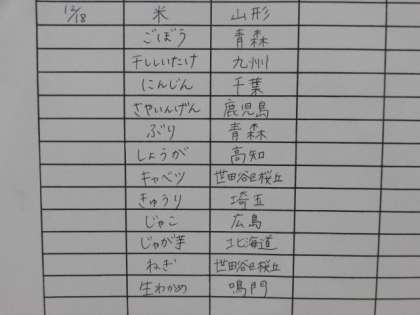 12/18 米 山形
ごぼう 青森
干ししいたけ 九州
にんじん 千葉
さやいんげん 鹿児島
ぶり 青森
しょうが 高知
キャベツ 世田谷区桜丘
きゅうり 埼玉
じゃこ 広島
じゃが芋 北海道
ねぎ 世田谷区桜丘
生わかめ 鳴門